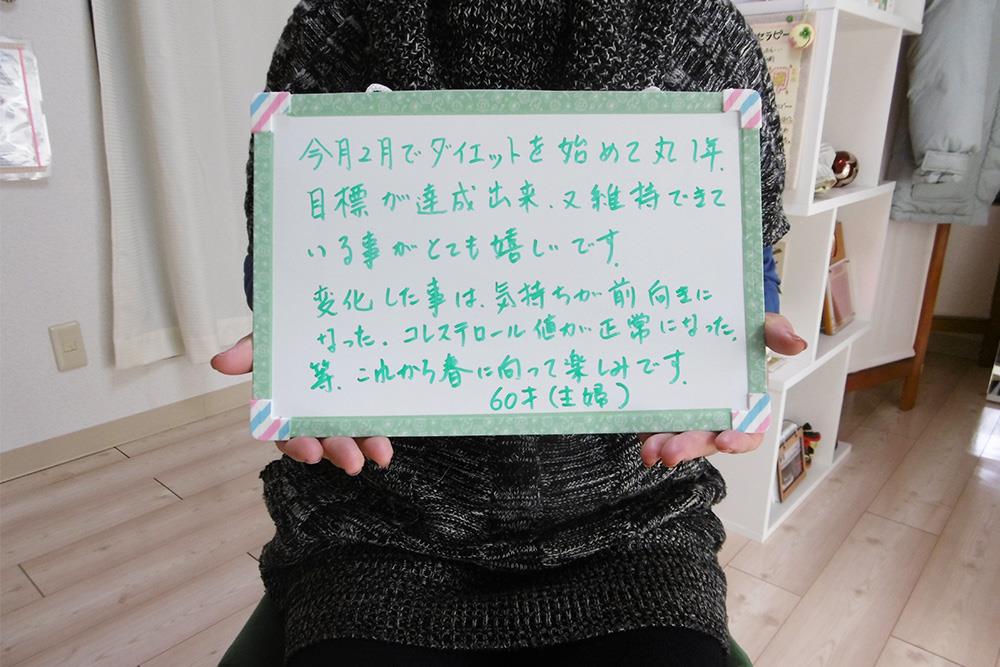 今月2月でダイエットを始めて丸1年.
目標が達成出来、又維持できて
いる事がとても嬉しいです.
変化した事は、気持ちが前向きに
なった、コレステロール値が正常になった、
等、これから春に向って楽しみです.
60才(主婦)
セラピー